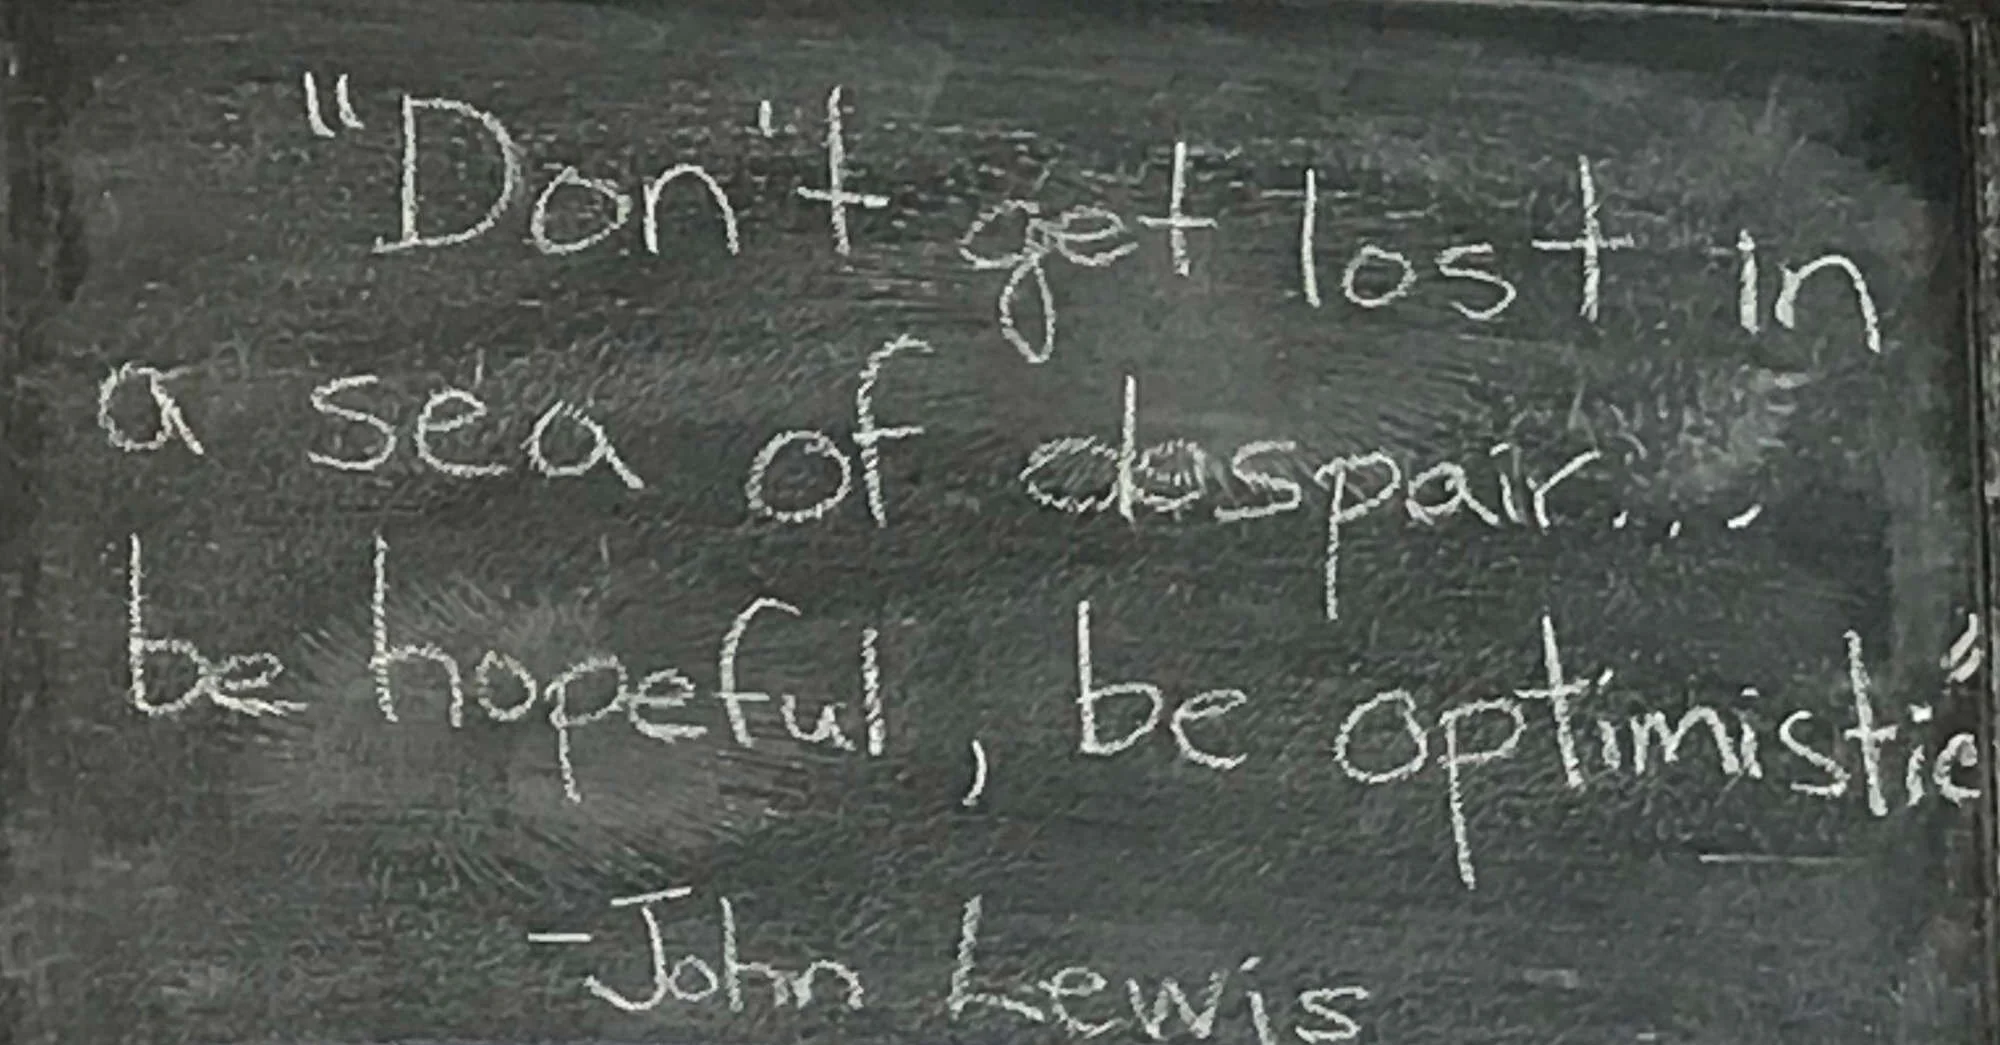 "Don't get lost in
a sea of despair...
be hopeful, be optimistic"
-John Lewis